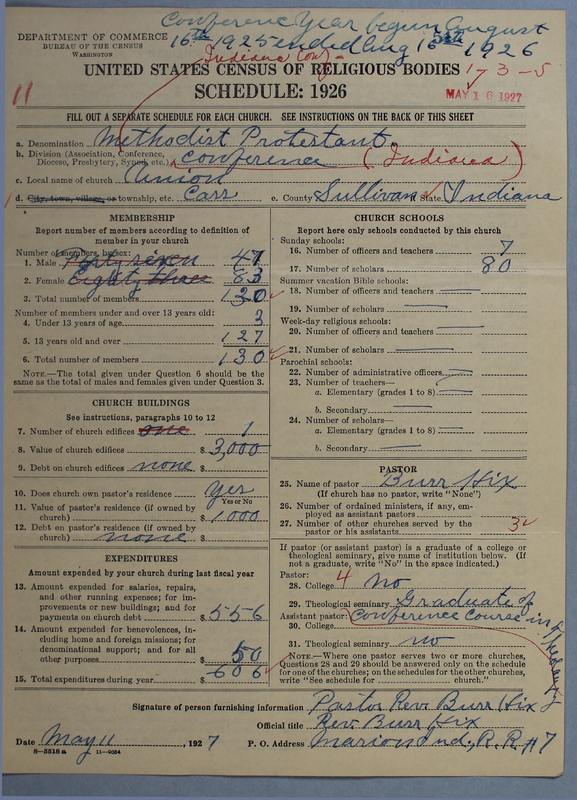 Conference Year begun August
16th 1925 ended Aug 16 1926
DEPARTMENT OF COMMERCE
BUREAU OF THE CENSUS
WASHINGTON
Indiana Conf-
UNITED STATES CENSUS OF RELIGIOUS BODIES
1-3-5
SCHEDULE: 1926
11
MAY 16 1927
FILL OUT A SEPARATE SCHEDULE FOR EACH CHURCH. SEE INSTRUCTIONS ON THE BACK OF THIS SHEET
a. Denomination Methodist Protestant.
b. Division (Association, Conference, Diocese, Presbytery, Synod, etc.) Conference (Indiana)
c. Local name of church Union
d. City, town, village, or township, etc. Carr e. County Sullivan State Indiana
MEMBERSHIP
Report number of members according to definition of
member in your church
Number of members, by sex:
1. Male Forty seven 47
2. Female Eighty three 83
3. Total number of members 130
Number of members under and over 13 years old:
4. Under 13 years of age 3
5. 13 years old and over 127
6. Total number of members 130
NOTE.—The total given under Question 6 should be the
same as the total of males and females given under Question 3.
CHURCH BUILDINGS
See instructions, paragraphs 10 to 12
7. Number of church edifices one 1
8. Value of church edifices $ 3,000
9. Debt on church edifices none $
10. Does church own pastor's residence Yes
Yes or No
11. Value of pastor's residence (if owned by
church) $ 1000
12. Debt on pastor's residence (if owned by
church) none $
EXPENDITURES
Amount expended by your church during last fiscal year
13. Amount expended for salaries, repairs,
and other running expenses; for im-
provements or new buildings; and for
payments on church debt $ 556
14. Amount expended for benevolences, in-
cluding home and foreign missions; for
denominational support; and for all
other purposes $ 50
15. Total expenditures during year $ 606
CHURCH SCHOOLS
Report here only schools conducted by this church
Sunday schools:
16. Number of officers and teachers 7
17. Number of scholars 80
Summer vacation Bible schools:
18. Number of officers and teachers
19. Number of scholars
Week-day religious schools:
20. Number of officers and teachers
21. Number of scholars
Parochial schools:
22. Number of administrative officers
23. Number of teachers—
a. Elementary (grades 1 to 8)
b. Secondary
24. Number of scholars—
a. Elementary (grades 1 to 8)
b. Secondary
PASTOR
25. Name of pastor Burr Hix
(If church has no pastor, write "None")
26. Number of ordained ministers, if any, em-
ployed as assistant pastors
27. Number of other churches served by the
pastor or his assistants 3
If pastor (or assistant pastor) is a graduate of a college or
theological seminary, give name of institution below. (If
not a graduate, write "No" in the space indicated.)
Pastor:
28. College 4 No
29. Theological seminary Graduate of
Assistant pastor: Conference Course in
30. College
31. Theological seminary no
NOTE.—Where one pastor serves two or more churches,
Questions 28 and 29 should be answered only on the schedule
for one of the churches; on the schedules for the other churches,
write "See schedule for church."
Signature of person furnishing information Pastor Rev. Burr Hix
Official title Rev. Burr Hix
Date May 11, 1927 P. O. Address Marion Ind., R.R #7
8—5518a 11—9034